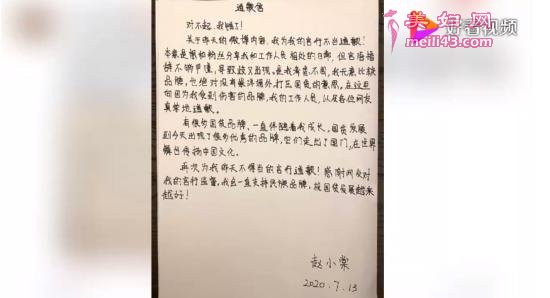 美妇网
meili43.com
好看视频
道歉信
对不起，我错了！
关于昨天的微博内容，我为我的言行不当道歉！
本意是想和粉丝分享我和工作人员相处的日常，但言语措
辞不够严谨，导致歧义出现，是我考虑不周，我无意比较
品牌，也绝对没有崇洋媚外，打压国货的意思。在这里
向因为我受到伤害的品牌，我的工作人员，以及各位网友
真挚地道歉。
有很多国货品牌，一直伴随着我成长，国货发展
到今天出现了很多优秀的品牌，它们走出了国门，在世界
舞台传扬中国文化。
再次为我昨天不得当的言行道歉！感谢网友对
我的言行监督，我会一直支持民族品牌，祝国货发展越来
越好！
赵小棠
2020.7.13